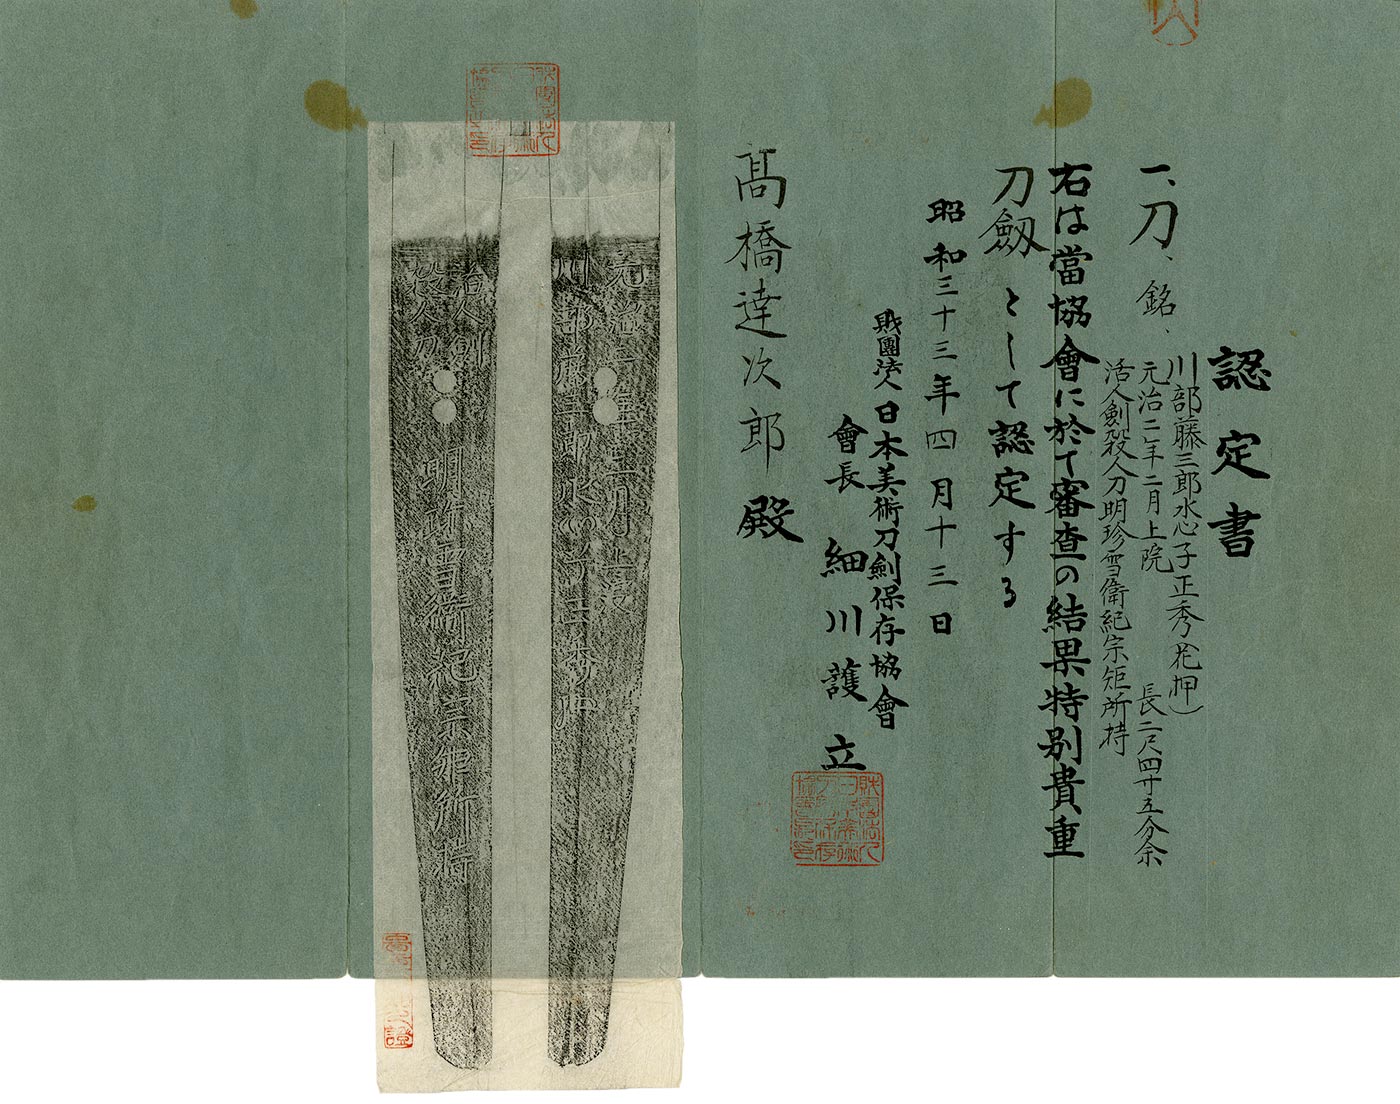 認定書
一、刀、銘、
川部藤三郎水心子正秀(花押)
元治二年二月上院　長二尺四寸五分余
活人劍殺人刀明珍雪衛紀宗矩所持
右は當協會に於て審査の結果特別貴重
刀劔として認定する
昭和三十三年四月十三日
財團法人日本美術刀劍保存協會
會長　細川護立
髙橋達次郎殿
元治二年二月上
川部藤三郎水心子正秀
活人劍
殺人刀
明珍雪衛紀宗矩所持